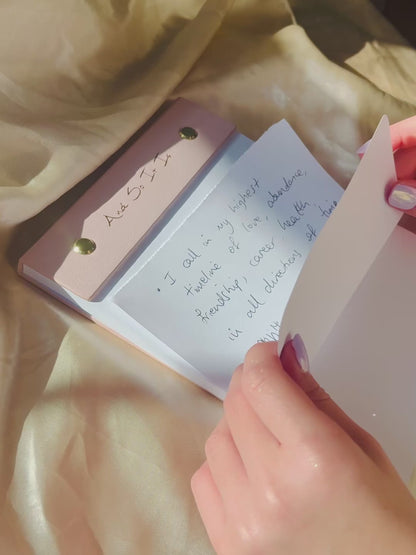 And So It Is
• I call in my highest
timeline of love, abundance,
friendship, career health
in all directions of time